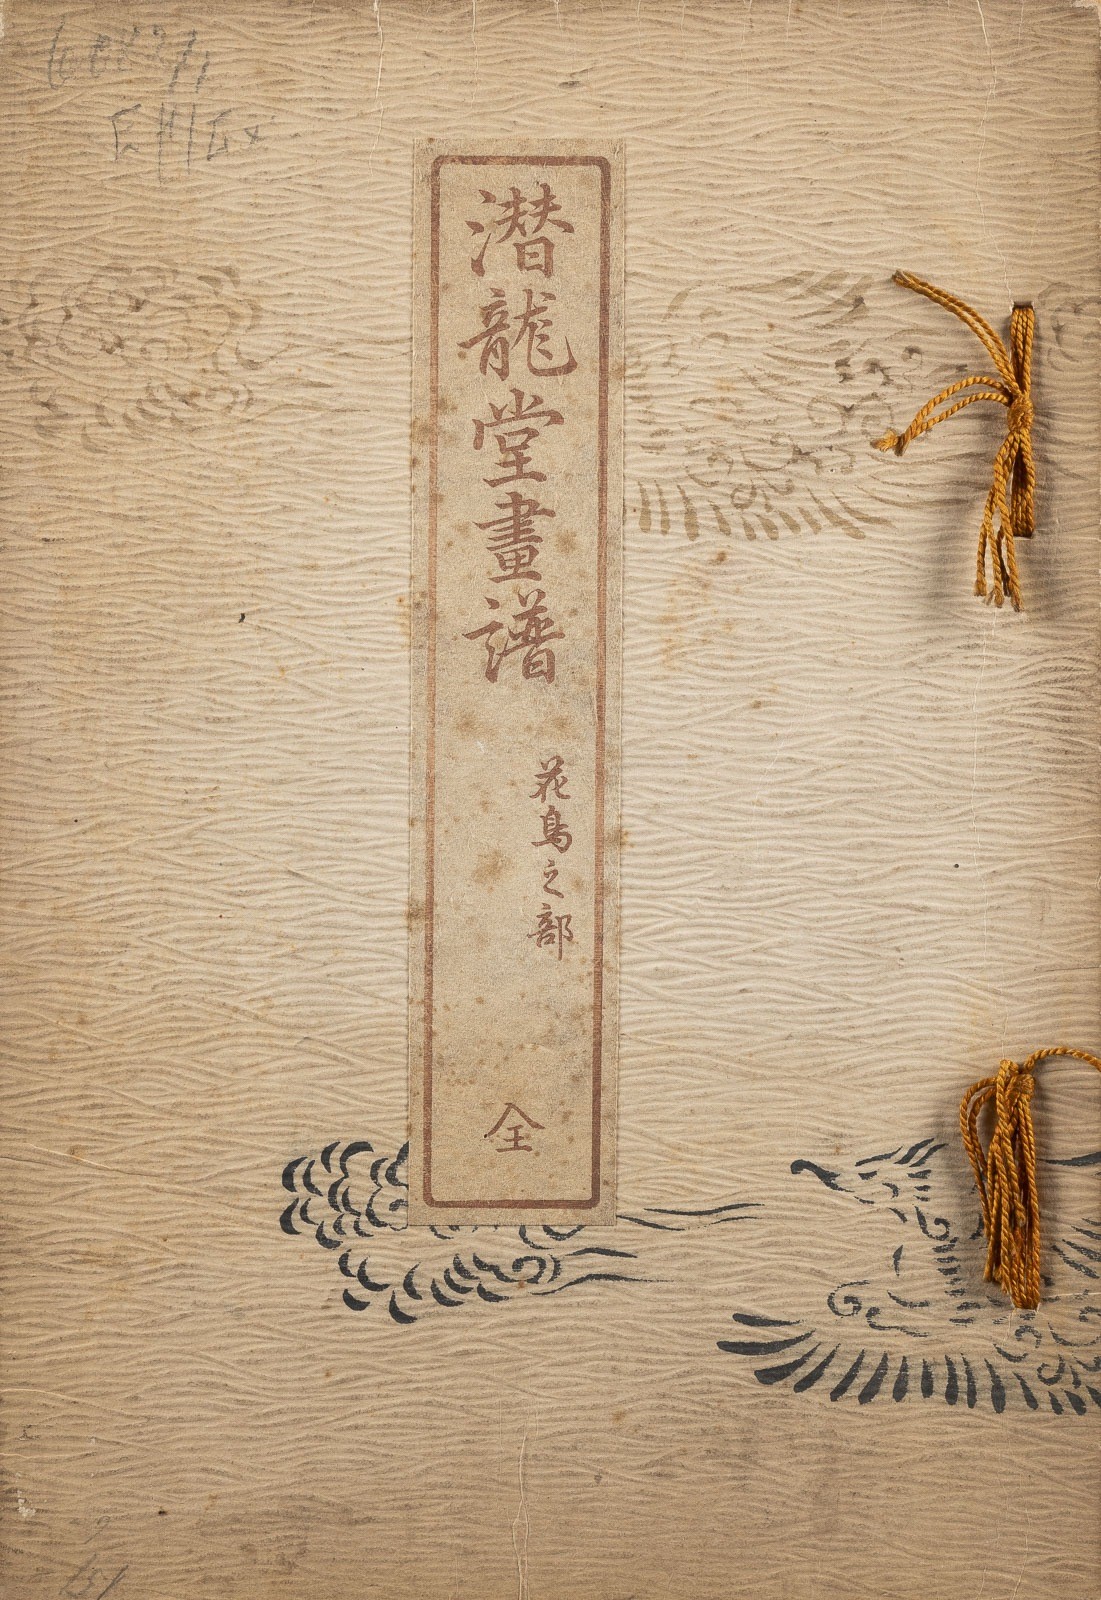 潜龍堂畫譜
花鳥之部
全